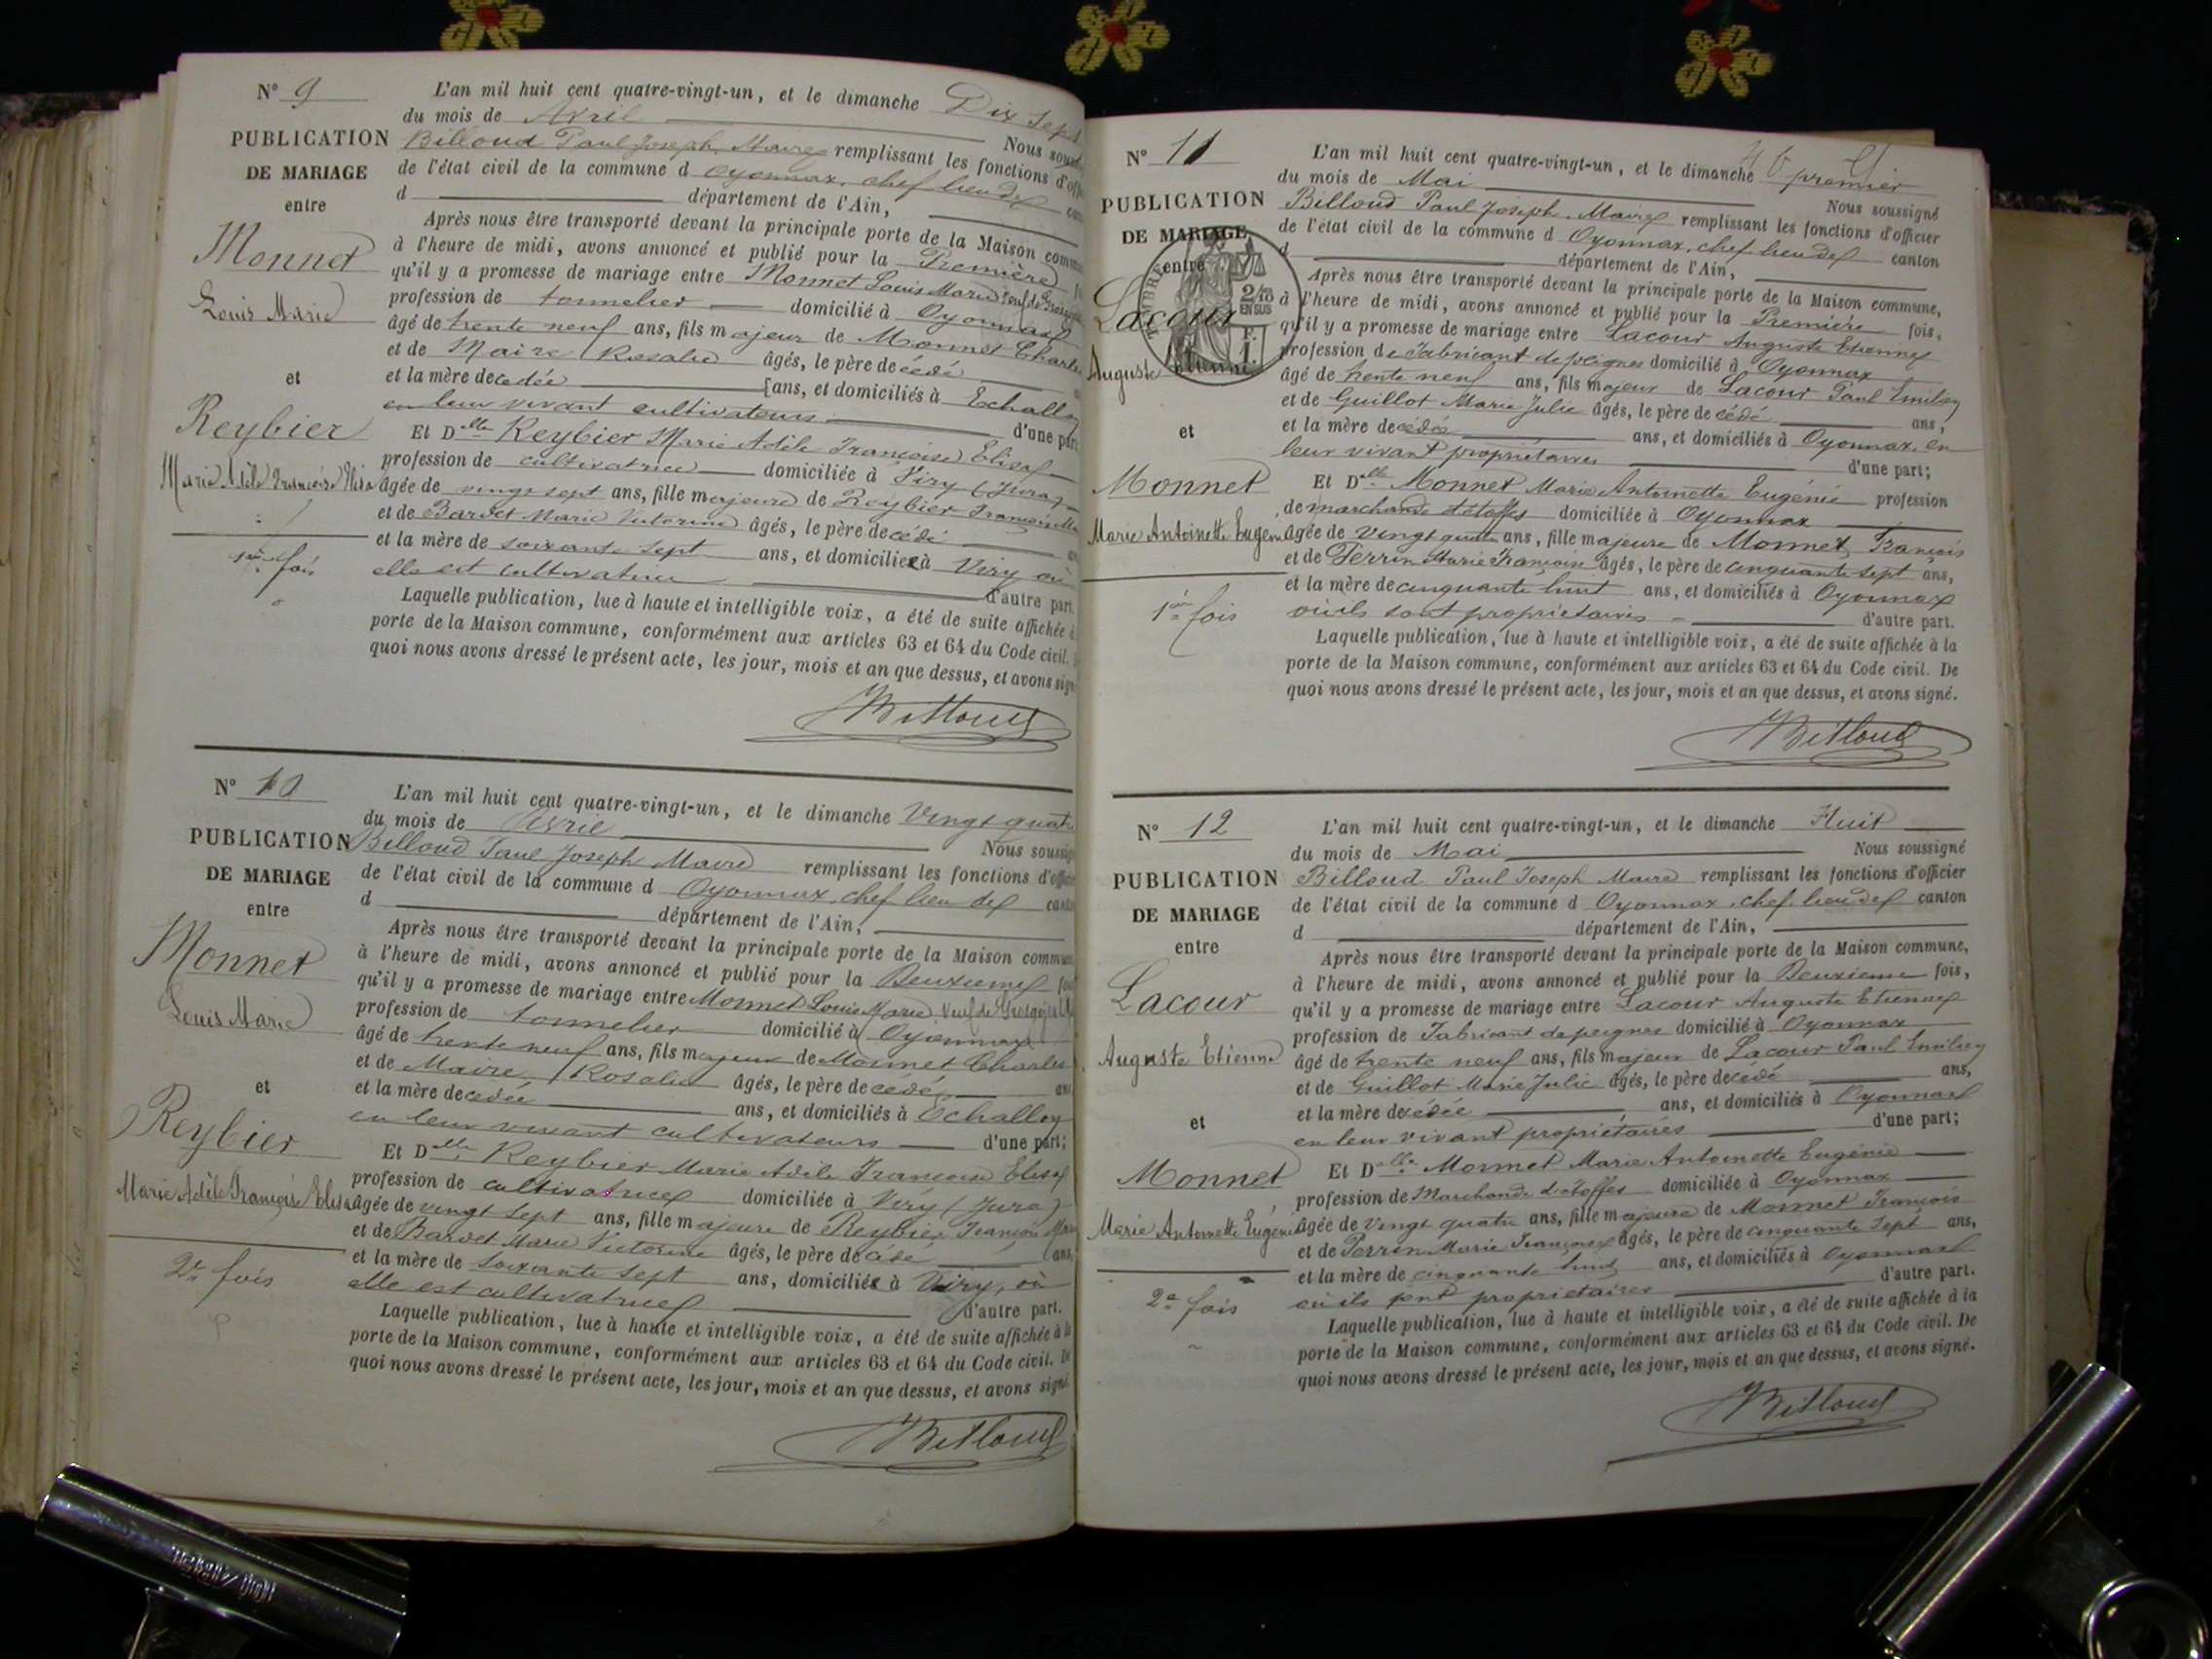 N° 9
PUBLICATION
DE MARIAGE
entre
Monnet
Louis Marie
et
Reybier
Marie Adèle Françoise Elisa
1ère fois
L'an mil huit cent quatre-vingt-un, et le dimanche Dix Sept
du mois de Avril Nous
Billoud Paul Joseph, Maire remplissant les fonctions
de l'état civil de la commune d Oyonnax, chef lieu de
d département de l'Ain,
Après nous être transporté devant la principale porte de la Maison
à l'heure de midi, avons annoncé et publié pour la Première
qu'il y a promesse de mariage entre Monnet Louis Marie veuf de
profession de tonnelier domicilié à Oyonnax
âgé de trente neuf ans, fils majeur de Monnet Charles
et de Maire Rosalie âgés, le père decédé
et la mère decedée ans, et domiciliés à Echallon
en leur vivant cultivateurs d'une part
Et Dlle Reybier Marie Adèle Françoise Elisa
profession de cultivatrice domiciliée à Viry (Jura)
âgée de vingt sept ans, fille majeure de Reybier François
et de Bardet Marie Victorine âgés, le père decédé
et la mère de soixante sept ans, et domiciliée à Viry où
elle est cultivatrice d'autre part.
Laquelle publication, lue à haute et intelligible voix, a été de suite affichée
porte de la Maison commune, conformément aux articles 63 et 64 du Code civil.
quoi nous avons dressé le présent acte, les jour, mois et an que dessus, et avons
Billoud
N° 10
PUBLICATION
DE MARIAGE
entre
Monnet
Louis Marie
et
Reybier
Marie Adèle Françoise Elisa
2e fois
L'an mil huit cent quatre-vingt-un, et le dimanche Vingt quatre
du mois de Avril Nous
Billoud Paul Joseph Maire remplissant les fonctions
de l'état civil de la commune d Oyonnax, chef lieu de
d département de l'Ain,
Après nous être transporté devant la principale porte de la Maison
à l'heure de midi, avons annoncé et publié pour la Deuxieme
qu'il y a promesse de mariage entre Monnet Louis Marie Veuf de
profession de tonnelier domicilié à Oyonnax
âgé de trente neuf ans, fils majeur de Monnet Charles
et de Maire Rosalie âgés, le père decédé
et la mère decédée ans, et domiciliés à Echallon
en leur vivant cultivateurs d'une part;
Et Dlle Reybier Marie Adèle Françoise Elisa
profession de cultivatrice domiciliée à Viry (Jura)
âgée de vingt sept ans, fille majeure de Reybier François Marie
et de Bardet Marie Victorine âgés, le père decédé ans,
et la mère de soixante sept ans, domiciliée à Viry, où
elle est cultivatrice d'autre part.
Laquelle publication, lue à haute et intelligible voix, a été de suite affichée à la
porte de la Maison commune, conformément aux articles 63 et 64 du Code civil. De
quoi nous avons dressé le présent acte, les jour, mois et an que dessus, et avons signé
Billoud
N° 11
PUBLICATION
DE MARIAGE
entre
TIMBRE
2/10
EN SUS
F.
1.
Lacour
Auguste Etienne
et
Monnet
Marie Antoinette Eugénie
1ère fois
L'an mil huit cent quatre-vingt-un, et le dimanche premier
du mois de Mai Nous soussigné
Billoud Paul Joseph, Maire remplissant les fonctions d'officier
de l'état civil de la commune d Oyonnax, chef lieu de canton
d département de l'Ain,
Après nous être transporté devant la principale porte de la Maison commune,
à l'heure de midi, avons annoncé et publié pour la Première fois,
qu'il y a promesse de mariage entre Lacour Auguste Etienne
profession de Fabricant de peignes domicilié à Oyonnax
âgé de trente neuf ans, fils majeur de Lacour Paul Emilien
et de Guillot Marie Julie âgés, le père decédé ans,
et la mère decédée ans, et domiciliés à Oyonnax, en
leur vivant propriétaires d'une part;
Et Dlle Monnet Marie Antoinette Eugénie profession
de marchande d'étoffes domiciliée à Oyonnax
âgée de vingt quatre ans, fille majeure de Monnet François
et de Perrin Marie Françoise âgés, le père de cinquante sept ans,
et la mère de cinquante huit ans, et domiciliés à Oyonnax
où ils sont propriétaires d'autre part.
Laquelle publication, lue à haute et intelligible voix, a été de suite affichée à la
porte de la Maison commune, conformément aux articles 63 et 64 du Code civil. De
quoi nous avons dressé le présent acte, les jour, mois et an que dessus, et avons signé.
Billoud
N° 12
PUBLICATION
DE MARIAGE
entre
Lacour
Auguste Etienne
et
Monnet
Marie Antoinette Eugénie
2e fois
L'an mil huit cent quatre-vingt-un, et le dimanche Huit
du mois de Mai Nous soussigné
Billoud Paul Joseph Maire remplissant les fonctions d'officier
de l'état civil de la commune d Oyonnax, chef lieu de canton
d département de l'Ain,
Après nous être transporté devant la principale porte de la Maison commune,
à l'heure de midi, avons annoncé et publié pour la Deuxieme fois,
qu'il y a promesse de mariage entre Lacour Auguste Etienne
profession de Fabricant de peignes domicilié à Oyonnax
âgé de trente neuf ans, fils majeur de Lacour Paul Emilien
et de Guillot Marie Julie âgés, le père decédé ans,
et la mère decédée ans, et domiciliés à Oyonnax
en leur vivant propriétaires d'une part;
Et Dlle Monnet Marie Antoinette Eugénie
profession de Marchande d'étoffes domiciliée à Oyonnax
âgée de vingt quatre ans, fille majeure de Monnet François
et de Perrin Marie Françoise âgés, le père de cinquante sept ans,
et la mère de cinquante huit ans, et domiciliés à Oyonnax
où ils sont propriétaires d'autre part.
Laquelle publication, lue à haute et intelligible voix, a été de suite affichée à la
porte de la Maison commune, conformément aux articles 63 et 64 du Code civil. De
quoi nous avons dressé le présent acte, les jour, mois et an que dessus, et avons signé.
Billoud